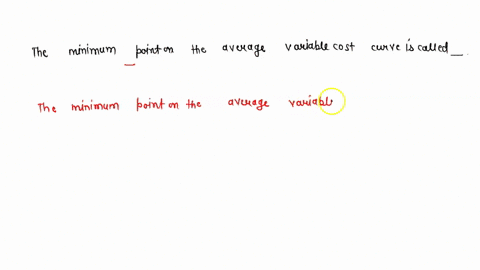 The minimum point on the average variable cost curve is called __.
The minimum point on the average variable